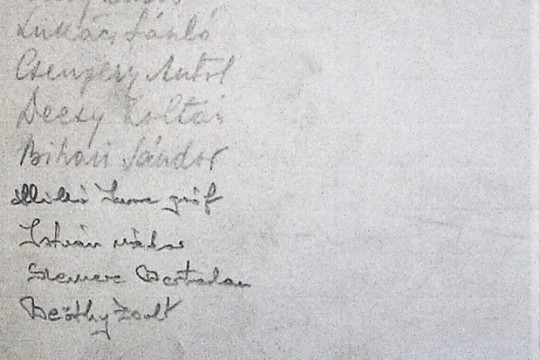 Lukács László
Csengery Antol
Decsy Zoltán
Bihari Sándor
Mikó Imre gróf
István nádor
Szemere Bertalan
Beöthy Zsolt